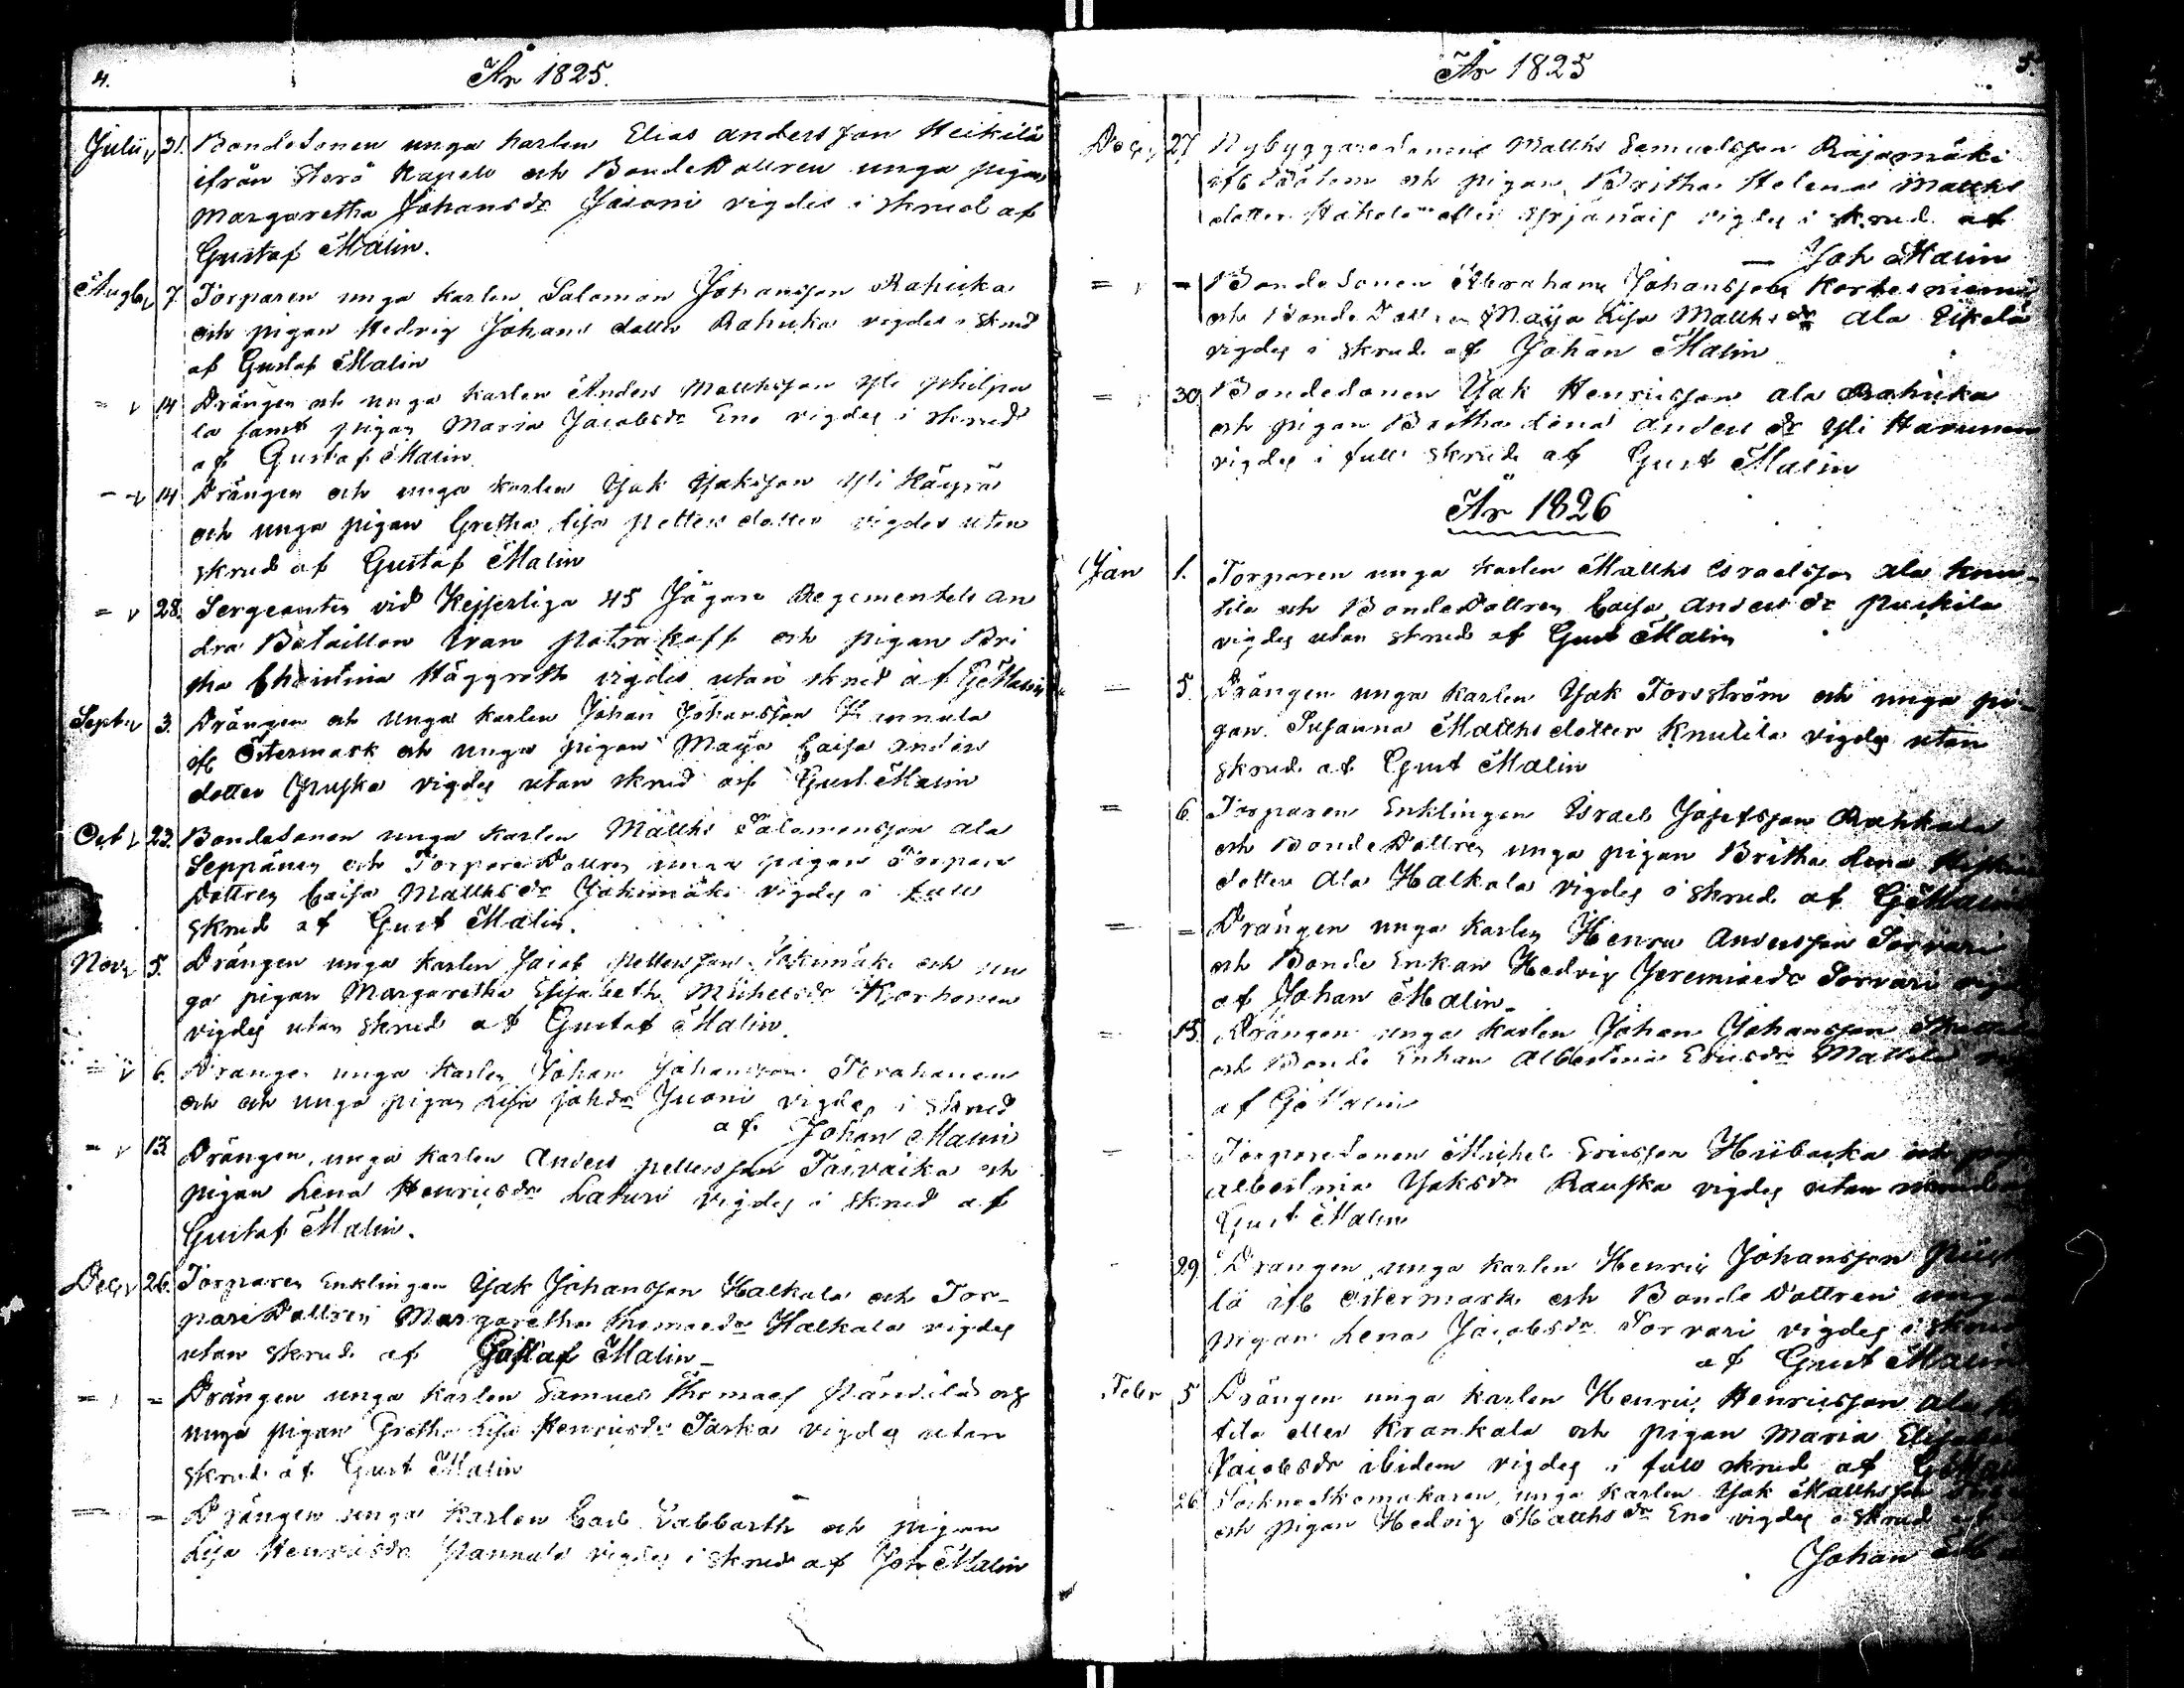 4.
År 1825.
Julii 31. Bondesonen unga karlen Elias andersson Heikilä
ifrån Storå Kapell och BondeDottren unga pigan
Margaretha Johansdr Jåsoni vigdes i skrud af
Gustaf Malin.
Augb 7 Torparen unga karlen Salomon Johansson Rahuka
och pigan Hedvig Johans dotter Rahuka vigdes i skrud
af Gustaf Malin
= 14 Drängen och unga karlen Anders Matthsson Yli philpa
la samt pigan Maria Jacobsdr Eno vigdes i skrud
af Gustaf Malin
= 14 Drängen och unga karlen Isak Isaksson Yli Käyrä
och unga pigan Gretha Lisa petters dotter vigdes utan
skrud af Gustaf Malin
= 28. Sergeanten vid Kejserliga 45 Jägare Regementets an
dra Bataillon Ivan patrakoff och pigan Bri
tha Christina Häggroth vigdes utan skrud af G Malin
Septr 3. Drängen och unga karlen Johan Johansson Kannala
ifr Östermark och unga pigan Maija Caisa anders
dotter puska vigdes utan skrud af Gust. Malin
Oct 23. Bondesonen unga karlen Matths Salomonsson ala
Seppänen och TorpareDottren unga pigan Torpare
Dottren Caisa Matthsdr Jokimäki vigdes i full
skrud af Gust Malin.
Nov 5. Drängen unga karlen Jacob pettersson Jokimäki och un
ga pigan Margaretha Elisabeth Michelsdr Korhonen
vigdes utan skrud af Gustaf Malin.
= 6. Drängen unga karlen Johan Johansson Torahanen
och och unga pigan Lisa Johdr Juoni vigdes i skrud
af Johan Malin
= 13 Drängen, unga karlen Anders pettersson Taivaika och
pigan Lena Henricsdr Laturi vigdes i skrud af
Gustaf Malin.
Decr 26. Torparen Enklingen Isak Johansson Halkola och Tor-
pareDottren Margaretha Thomasdr Halkola vigdes
utan skrud af Gustaf Malin_
= = Drängen unga karlen Samuel Thomass Nandila och
unga pigan Gretha Lisa Henricsdr Tarka vigdes utan
skrud af Gust Malin
= = Drängen unga karlen Carl Labbarth och pigan
Lisa Henricsdr pannula vigdes i skrud af Joh Malin
År 1825
5.
Decr 27 Nybyggaresonen Matths Samuelsson Rajamäki
och pigan Britha Helena Matths
dotter Hakola eller vigdes i skrud af
— Joh Malin
= = Bondesonen Abraham Johansson Kortesniemi
och BondeDottren Maija Lisa Matthsdr ala
vigdes i skrud af Johan Malin
= 30 Bondesonen Isak Henricsson ala Rahuka
och pigan Britha Lena anders dr Yli Harunen
vigdes i full skrud af Gust Malin
År 1826
Jan 1. Torparen unga karlen Matths Israelsson ala knu-
tila och BondeDottren Caisa Anders dr
vigdes utan skrud af Gust Malin
= 5. Drängen unga karlen Isak Forsström och unga pi-
gan Susanna Matthsdotter Knutila vigdes utan
skrud af Gust Malin
= 6. Torparen Enklingen Israel Josefsson Rahkola
och BondeDottren unga pigan Britha Lena
dotter Ala Halkola vigdes i skrud af G Malin
= = Drängen unga karlen Henric Andersson Sorvari
och Bonde Enkan Hedvig Jeremiasdr Sorvari
af Johan Malin_
= 15. Drängen unga karlen Johan Johansson
och Bonde Enkan Albertina Ericsdr Mattila
af G Malin
= Torparesonen Michel Ericsson Hribacka och
albertina Isaksdr Rauska vigdes utan
Gust Malin
29. Drangen unga karlen Henric Johansson
lä ifr Östermark och BondeDottren unga
pigan Lena Jacobsdr Torvari vigdes i skrud
af Gust Malin
Febr 5 Drängen unga karlen Henric Henricsson ala
tila eller Krankala och pigan Maria
Jacobsdr ibidem vigdes i full skrud af
26 Socknedkomakaren, unga karlen Isak Matthsson
och pigan Hedvig Matths dr Eno vigdes i skrud af
Johan